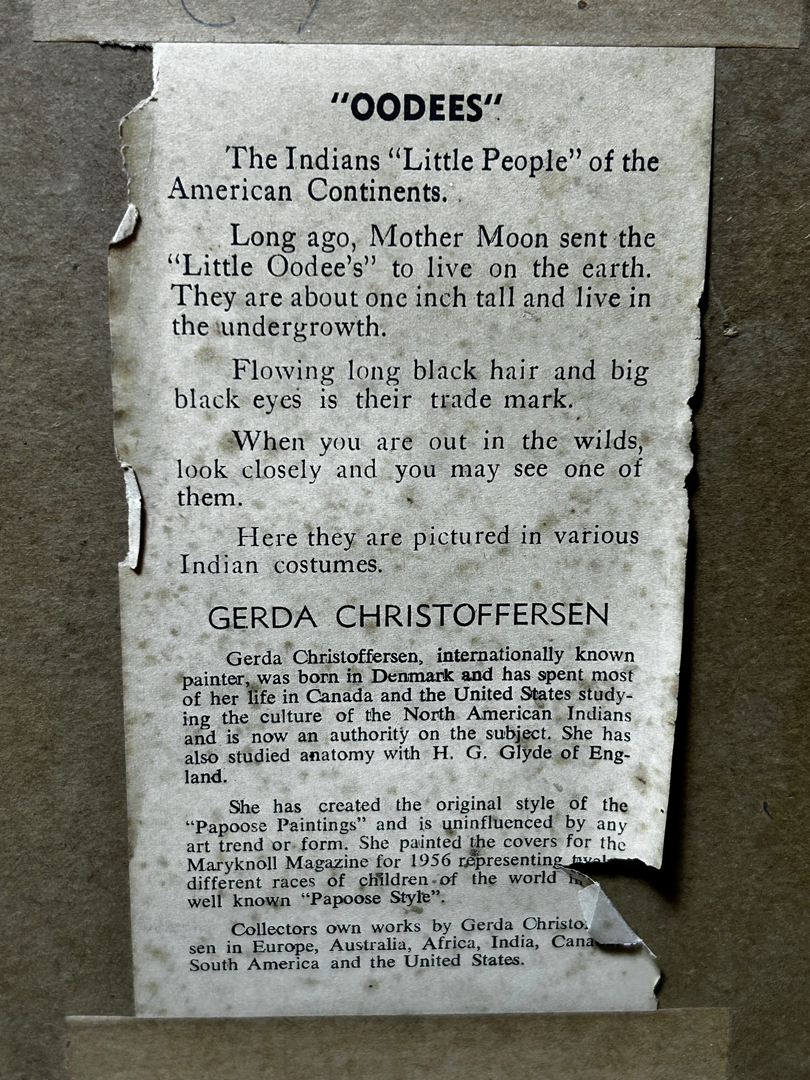 "OODEES"
The Indians "Little People" of the
American Continents.
Long ago, Mother Moon sent the
"Little Oodee's" to live on the earth.
They are about one inch tall and live in
the undergrowth.
Flowing long black hair and big
black eyes is their trade mark.
When you are out in the wilds,
look closely and you may see one of
them.
Here they are pictured in various
Indian costumes.
GERDA CHRISTOFFERSEN
Gerda Christoffersen, internationally known
painter, was born in Denmark and has spent most
of her life in Canada and the United States study-
ing the culture of the North American Indians
and is now an authority on the subject. She has
also studied anatomy with H. G. Glyde of Eng-
land.
She has created the original style of the
"Papoose Paintings" and is uninfluenced by any
art trend or form. She painted the covers for the
Maryknoll Magazine for 1956 representing
different races of children of the world
well known "Papoose Style".
Collectors own works by Gerda
sen in Europe, Australia, Africa, India,
South America and the United States.